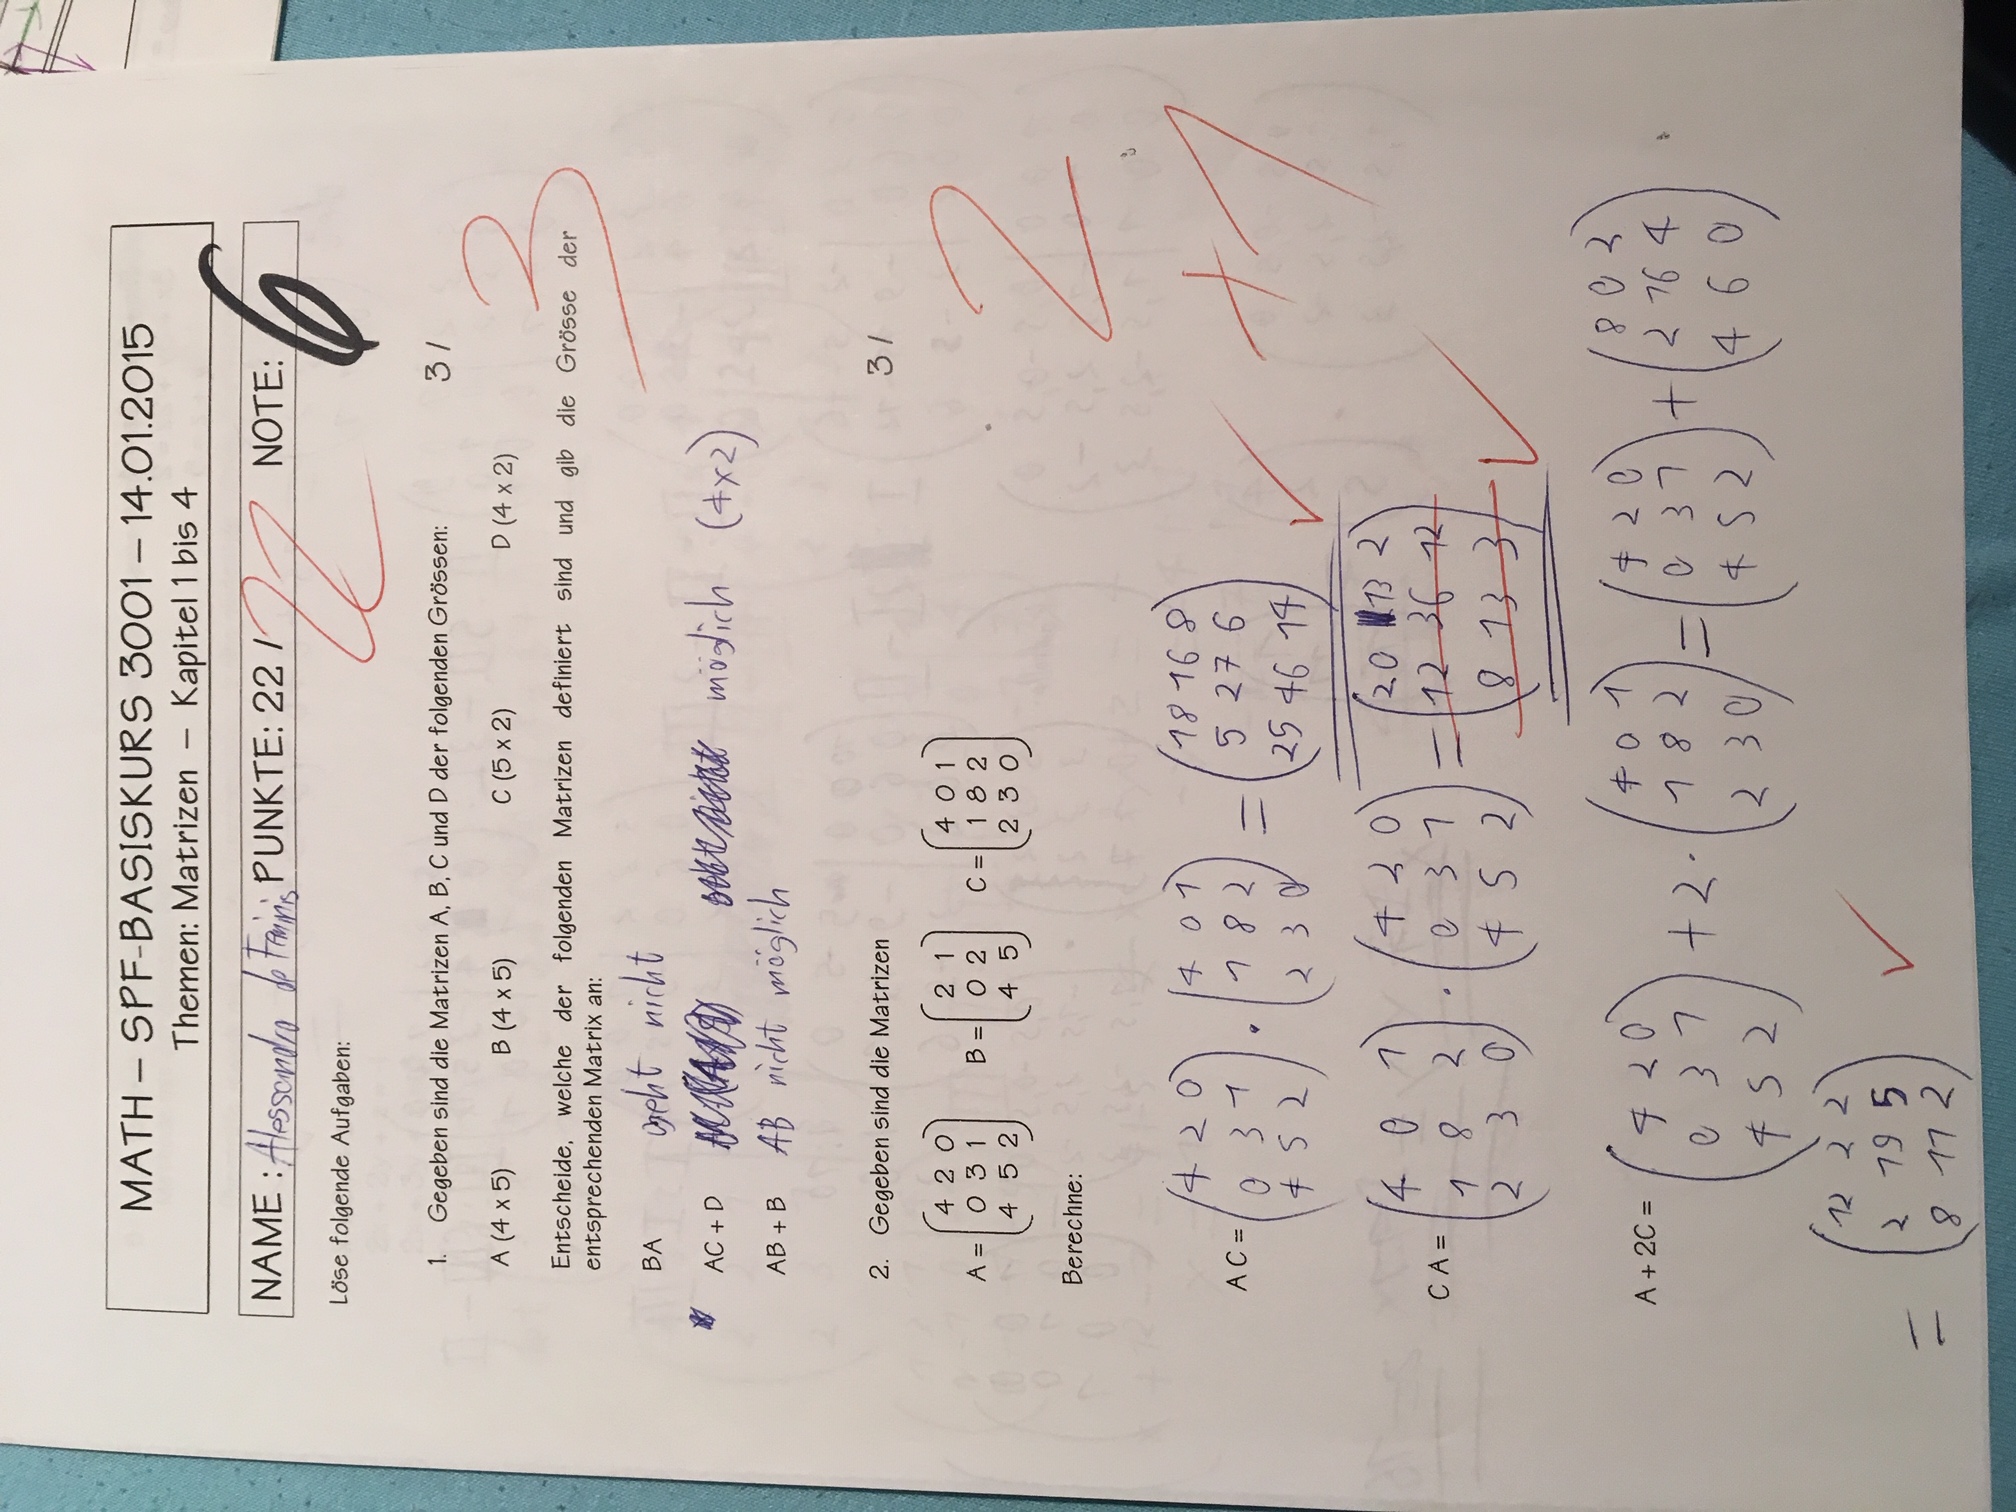 MATH – SPF-BASISKURS 3001 – 14.01.2015
Themen: Matrizen – Kapitel 1 bis 4
NAME : Alessandro de PUNKTE: 22 / 22 NOTE: 6
Löse folgende Aufgaben:
1. Gegeben sind die Matrizen A, B, C und D der folgenden Grössen: 3 /
3
A (4 x 5) B (4 x 5) C (5 x 2) D (4 x 2)
Entscheide, welche der folgenden Matrizen definiert sind und gib die Grösse der
entsprechenden Matrix an:
BA geht nicht
AC + D möglich (4x2)
AB + B AB nicht möglich
2. Gegeben sind die Matrizen 3 /
2
4 2 0 2 1 4 0 1
A = 0 3 1 B = 0 2 C = 1 8 2
4 5 2 4 5 2 3 0
Berechne:
+1
4 2 0 4 0 1 18 16 8
AC = 0 3 1 · 1 8 2 = 5 27 6 ✓
4 5 2 2 3 0 25 46 14
4 0 1 4 2 0 20 13 2
CA = 1 8 2 · 0 3 1 = 12 36 12
2 3 0 4 5 2 8 13 3 ✓
4 2 0 4 0 1 4 2 0 8 0 2
A + 2C = 0 3 1 + 2 · 1 8 2 = 0 3 1 + 2 16 4
4 5 2 2 3 0 4 5 2 4 6 0
12 2 2
= 2 19 5 ✓
8 11 2